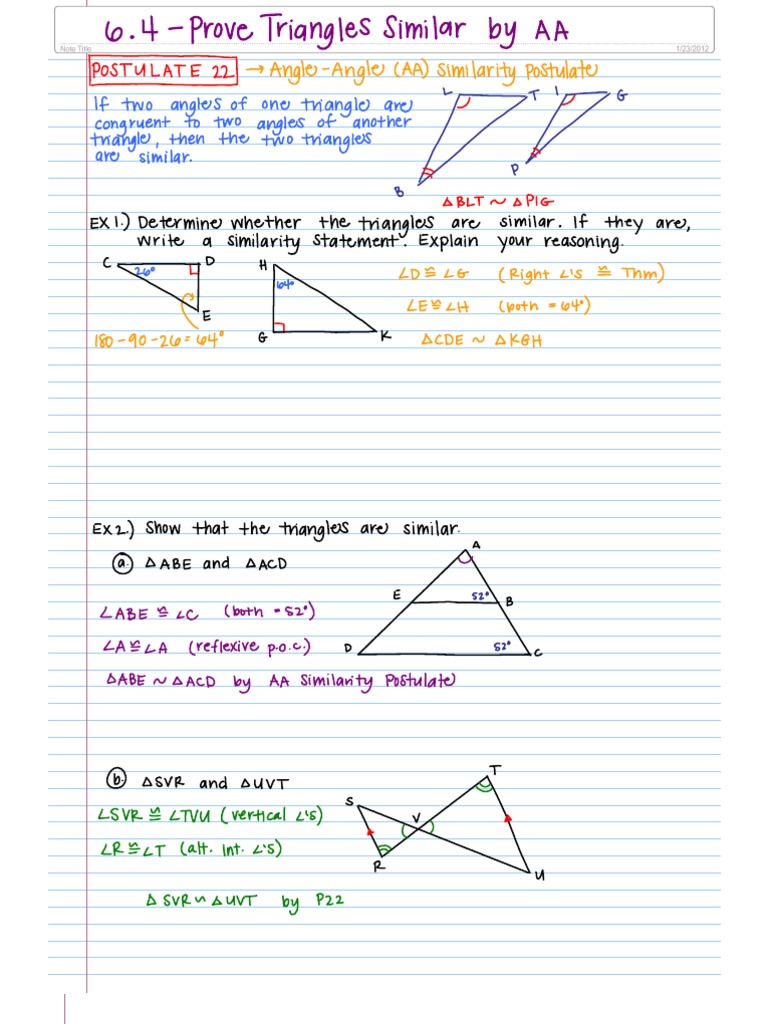 6.4 - Prove Triangles Similar by AA
Note Title
1/23/2012
POSTULATE 22 → Angle-Angle (AA) Similarity Postulate
If two angles of one triangle are
congruent to two angles of another
triangle, then the two triangles
are similar.
L T I G
B P
△BLT ~ △PIG
EX 1.) Determine whether the triangles are similar. If they are,
write a similarity statement. Explain your reasoning.
C 26° D
E
180-90-26=64°
H
64°
G K
∠D ≅ ∠G (Right ∠'s ≅ Thm)
∠E ≅ ∠H (both = 64°)
△CDE ~ △KGH
EX 2.) Show that the triangles are similar.
a. △ABE and △ACD
∠ABE ≅ ∠C (both = 52°)
∠A ≅ ∠A (reflexive p.o.c.)
△ABE ~ △ACD by AA Similarity Postulate
A
E 52° B
D 52° C
b. △SVR and △UVT
∠SVR ≅ ∠TVU (vertical ∠'s)
∠R ≅ ∠T (alt. int. ∠'s)
△SVR ~ △UVT by P22
T
S V
R U